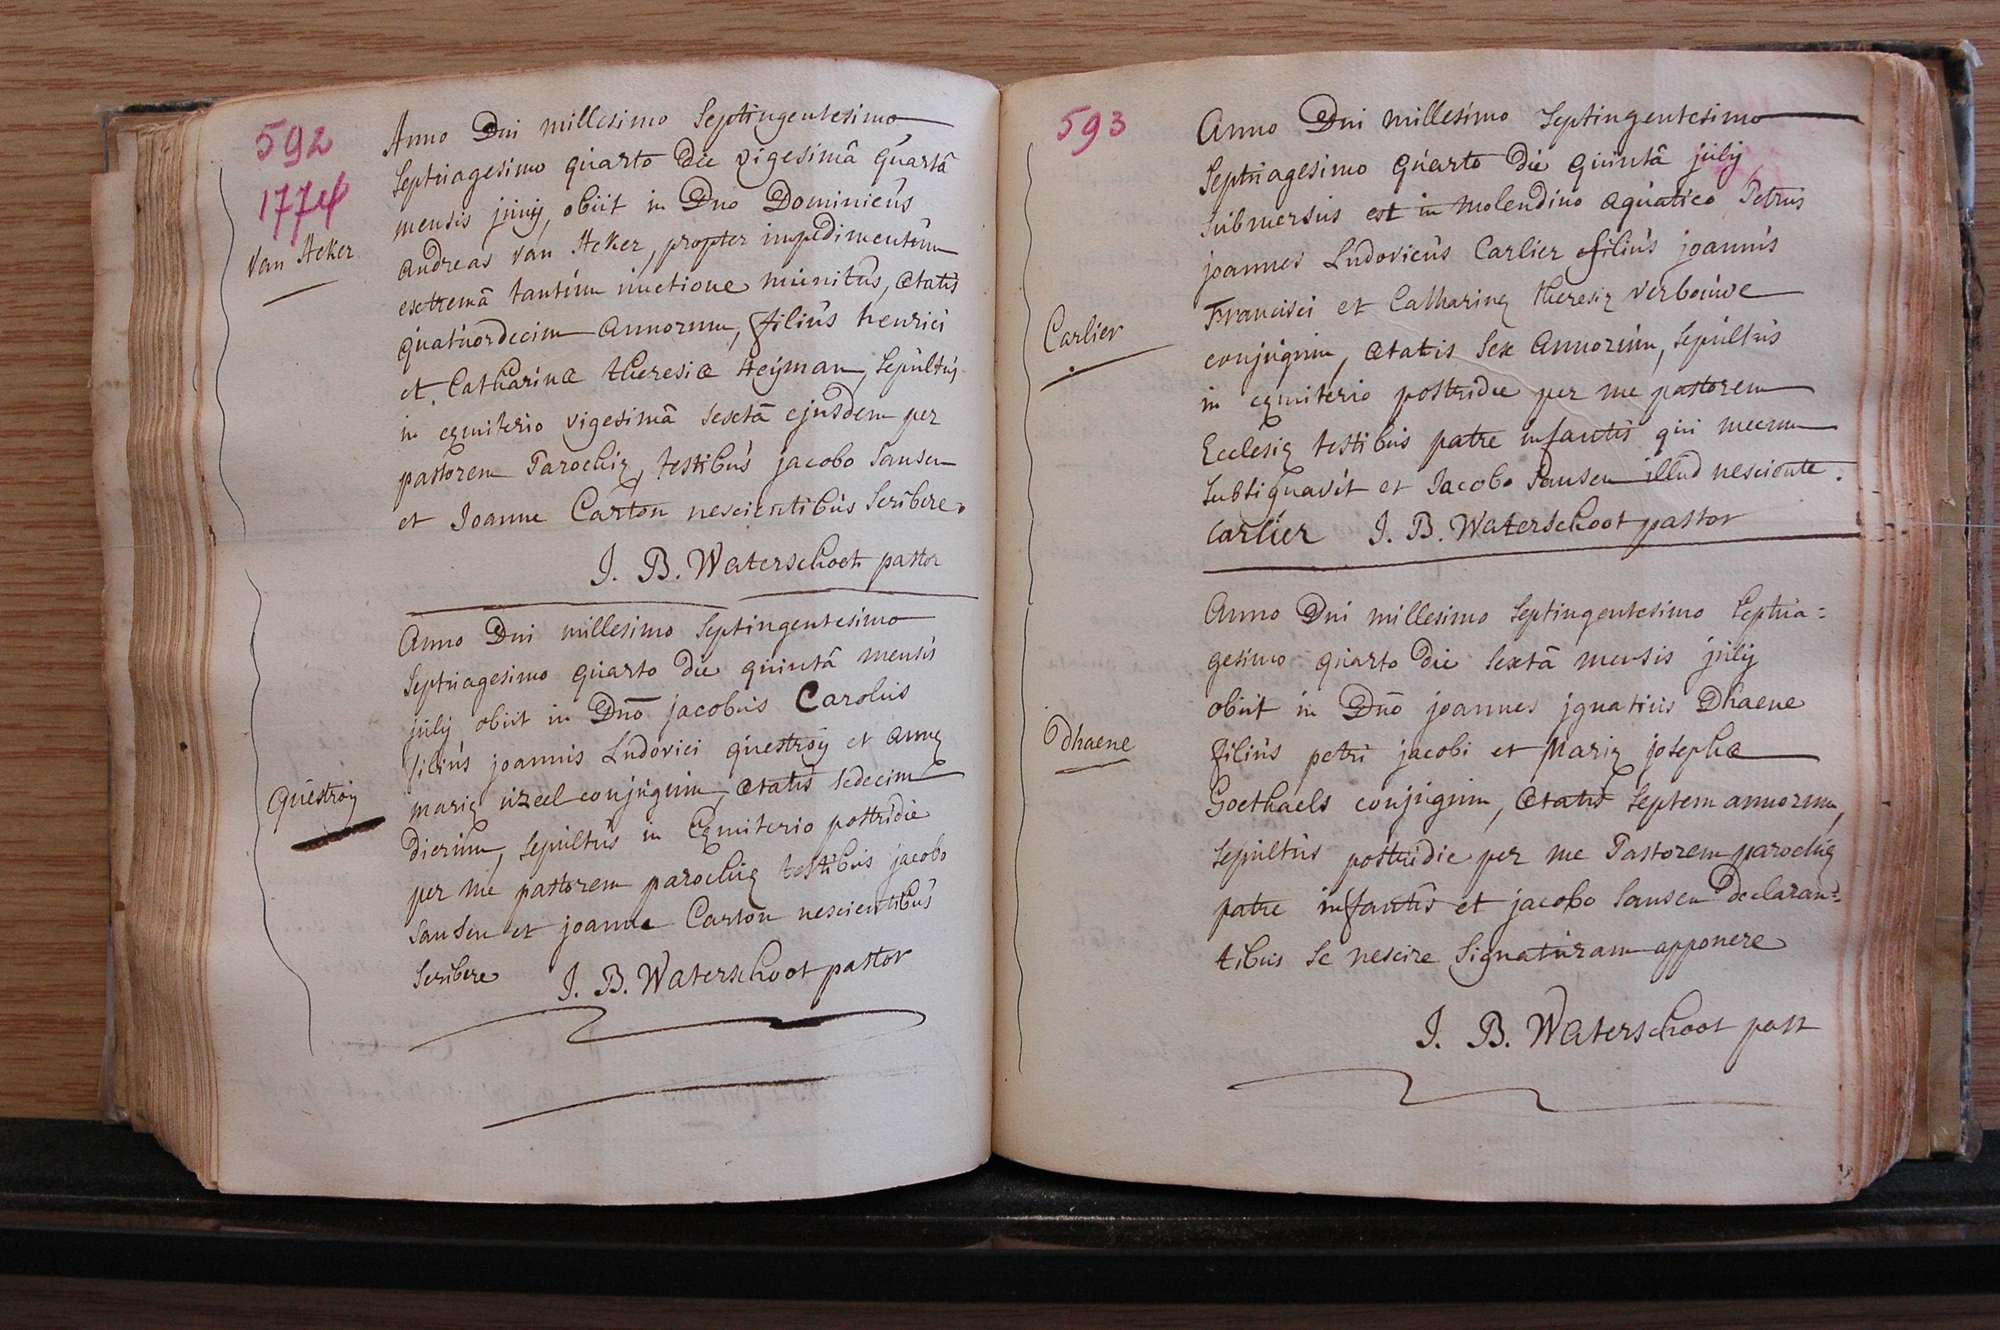 592
1774
Van Acker
Anno Dni millesimo Septingentesimo
Septuagesimo quarto die vigesimâ quartâ
mensis junij, obiit in Dno Dominicus
andreas van Acker, propter impedimentum
extremâ tantum unctione munitus, ætatis
quatuordecim annorum, filius henrici
et Catharinæ theresiæ Heÿman, sepultus
in cęmiterio vigesimâ sextâ ejusdem per
pastorem Parochię, testibus jacobo Sansen
et Joanne Carton nescientibus scribere.
J. B. Waterschoot pastor
Questroÿ
Anno Dni millesimo Septingentesimo
Septuagesimo quarto die quintâ mensis
julij obiit in Dno jacobus Carolus
filius joannis Ludovici questroÿ et annę
marię uzeel conjugum, ætatis sedecim
dierum, sepultus in Cęmiterio postridie
per me pastorem parochię testibus jacobo
Sansen et joanne Carton nescientibus
scribere J. B. Waterschoot pastor
593
Carlier
Anno Dni millesimo septingentesimo
Septuagesimo quarto die quintâ julij
submersus est in molendino aquatico Petrus
joannes Ludovicus Carlier filius joannis
Francisci et Catharinę theresię verbouwe
conjugum, ætatis sex annorum, sepultus
in cęmiterio postridie per me pastorem
Ecclesię testibus patre infantis qui mecum
subsignavit et Jacobo Sansen illud nesciente.
Carlier J. B. Waterschoot pastor
Dhaene
Anno Dni millesimo septingentesimo septua=
gesimo quarto die sextâ mensis julij
obiit in Dno joannes jgnatius Dhaene
filius petri jacobi et Marię josephæ
Goethaels conjugum, ætatis septem annorum,
sepultus postridie per me Pastorem parochię
patre infantis et jacobo Sansen declaran=
tibus se nescire signaturam apponere
J. B. Waterschoot past